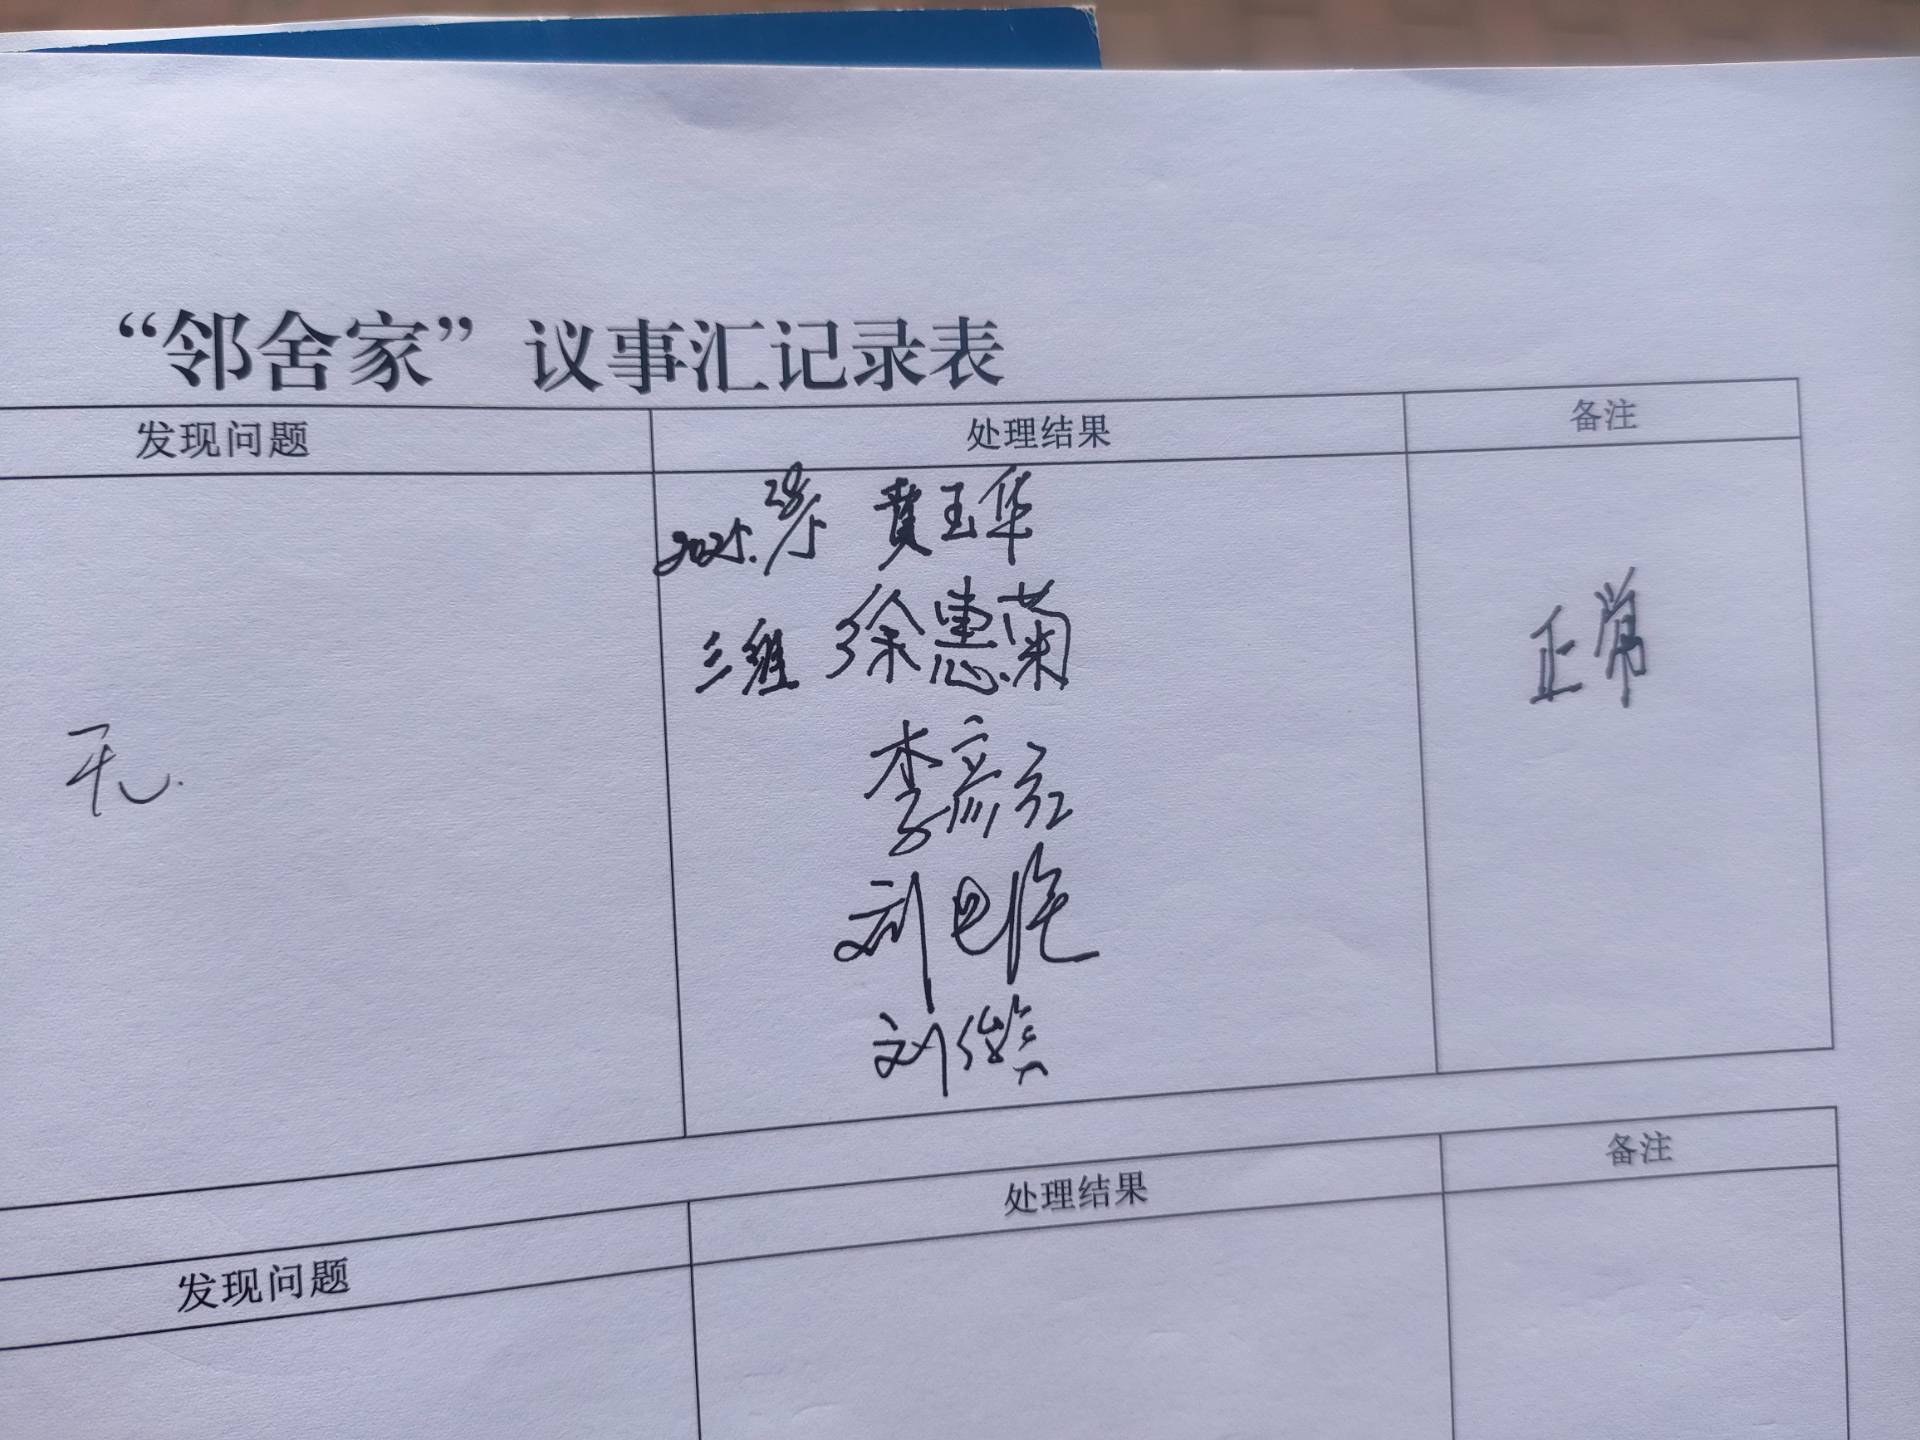 “邻舍家”议事汇记录表
发现问题 处理结果 备注
2025.28/5 费玉华
三组 徐惠菊
正常
无.
李彦红
刘
刘俊
处理结果 备注
发现问题